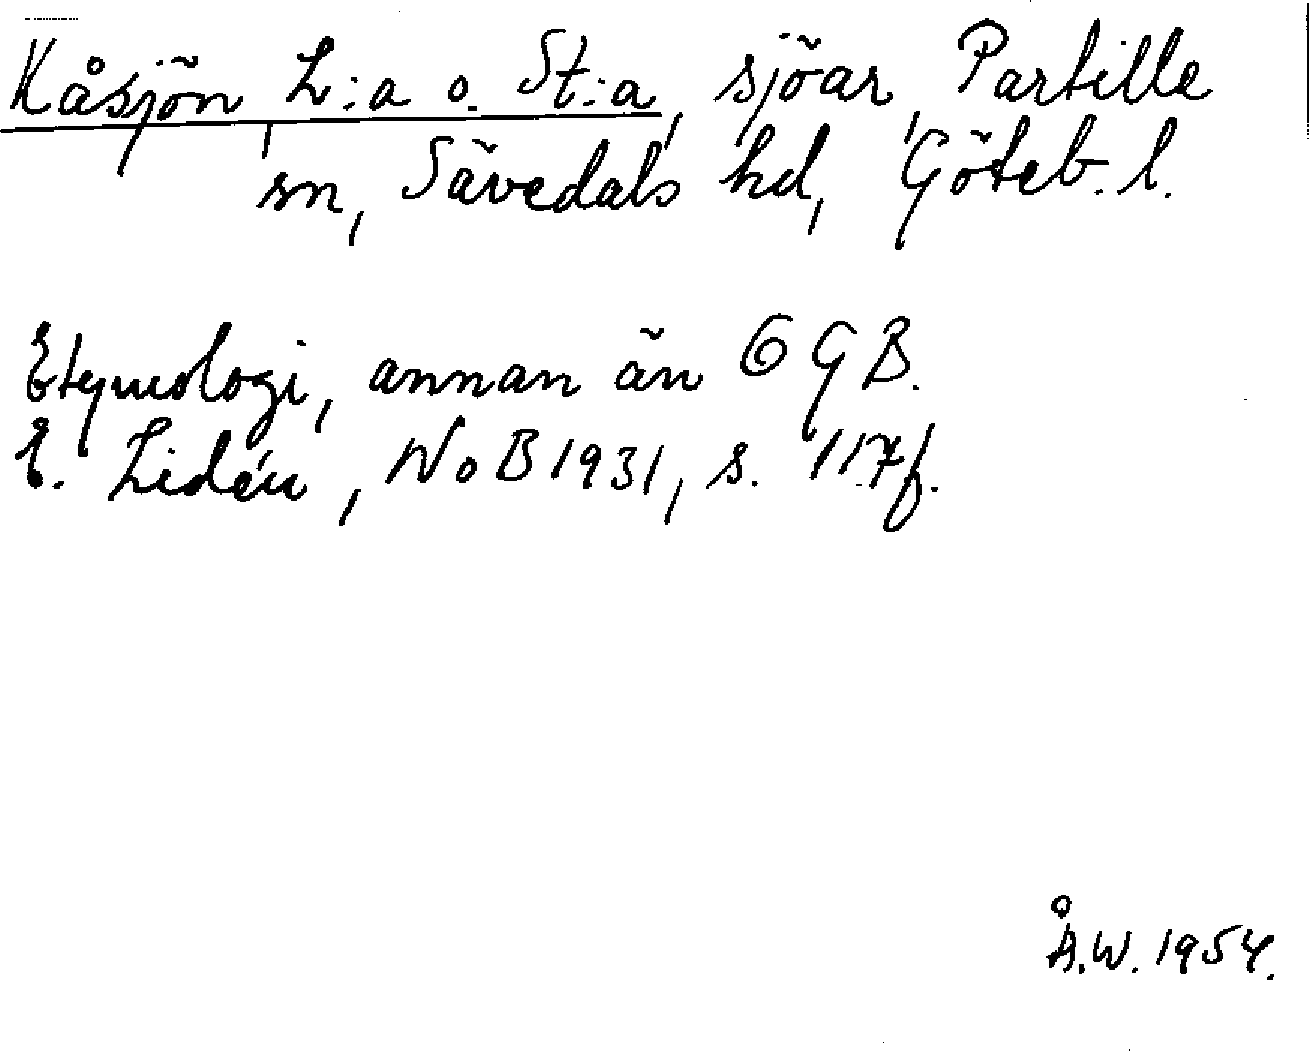 Kåsjön, L:a o. St:a, sjöar, Partille
sn, Sävedals hd, Göteb. l.
Etymologi, annan än OGB.
E. Lidén, NoB 1931, s. 117f.
Å.W. 1954.